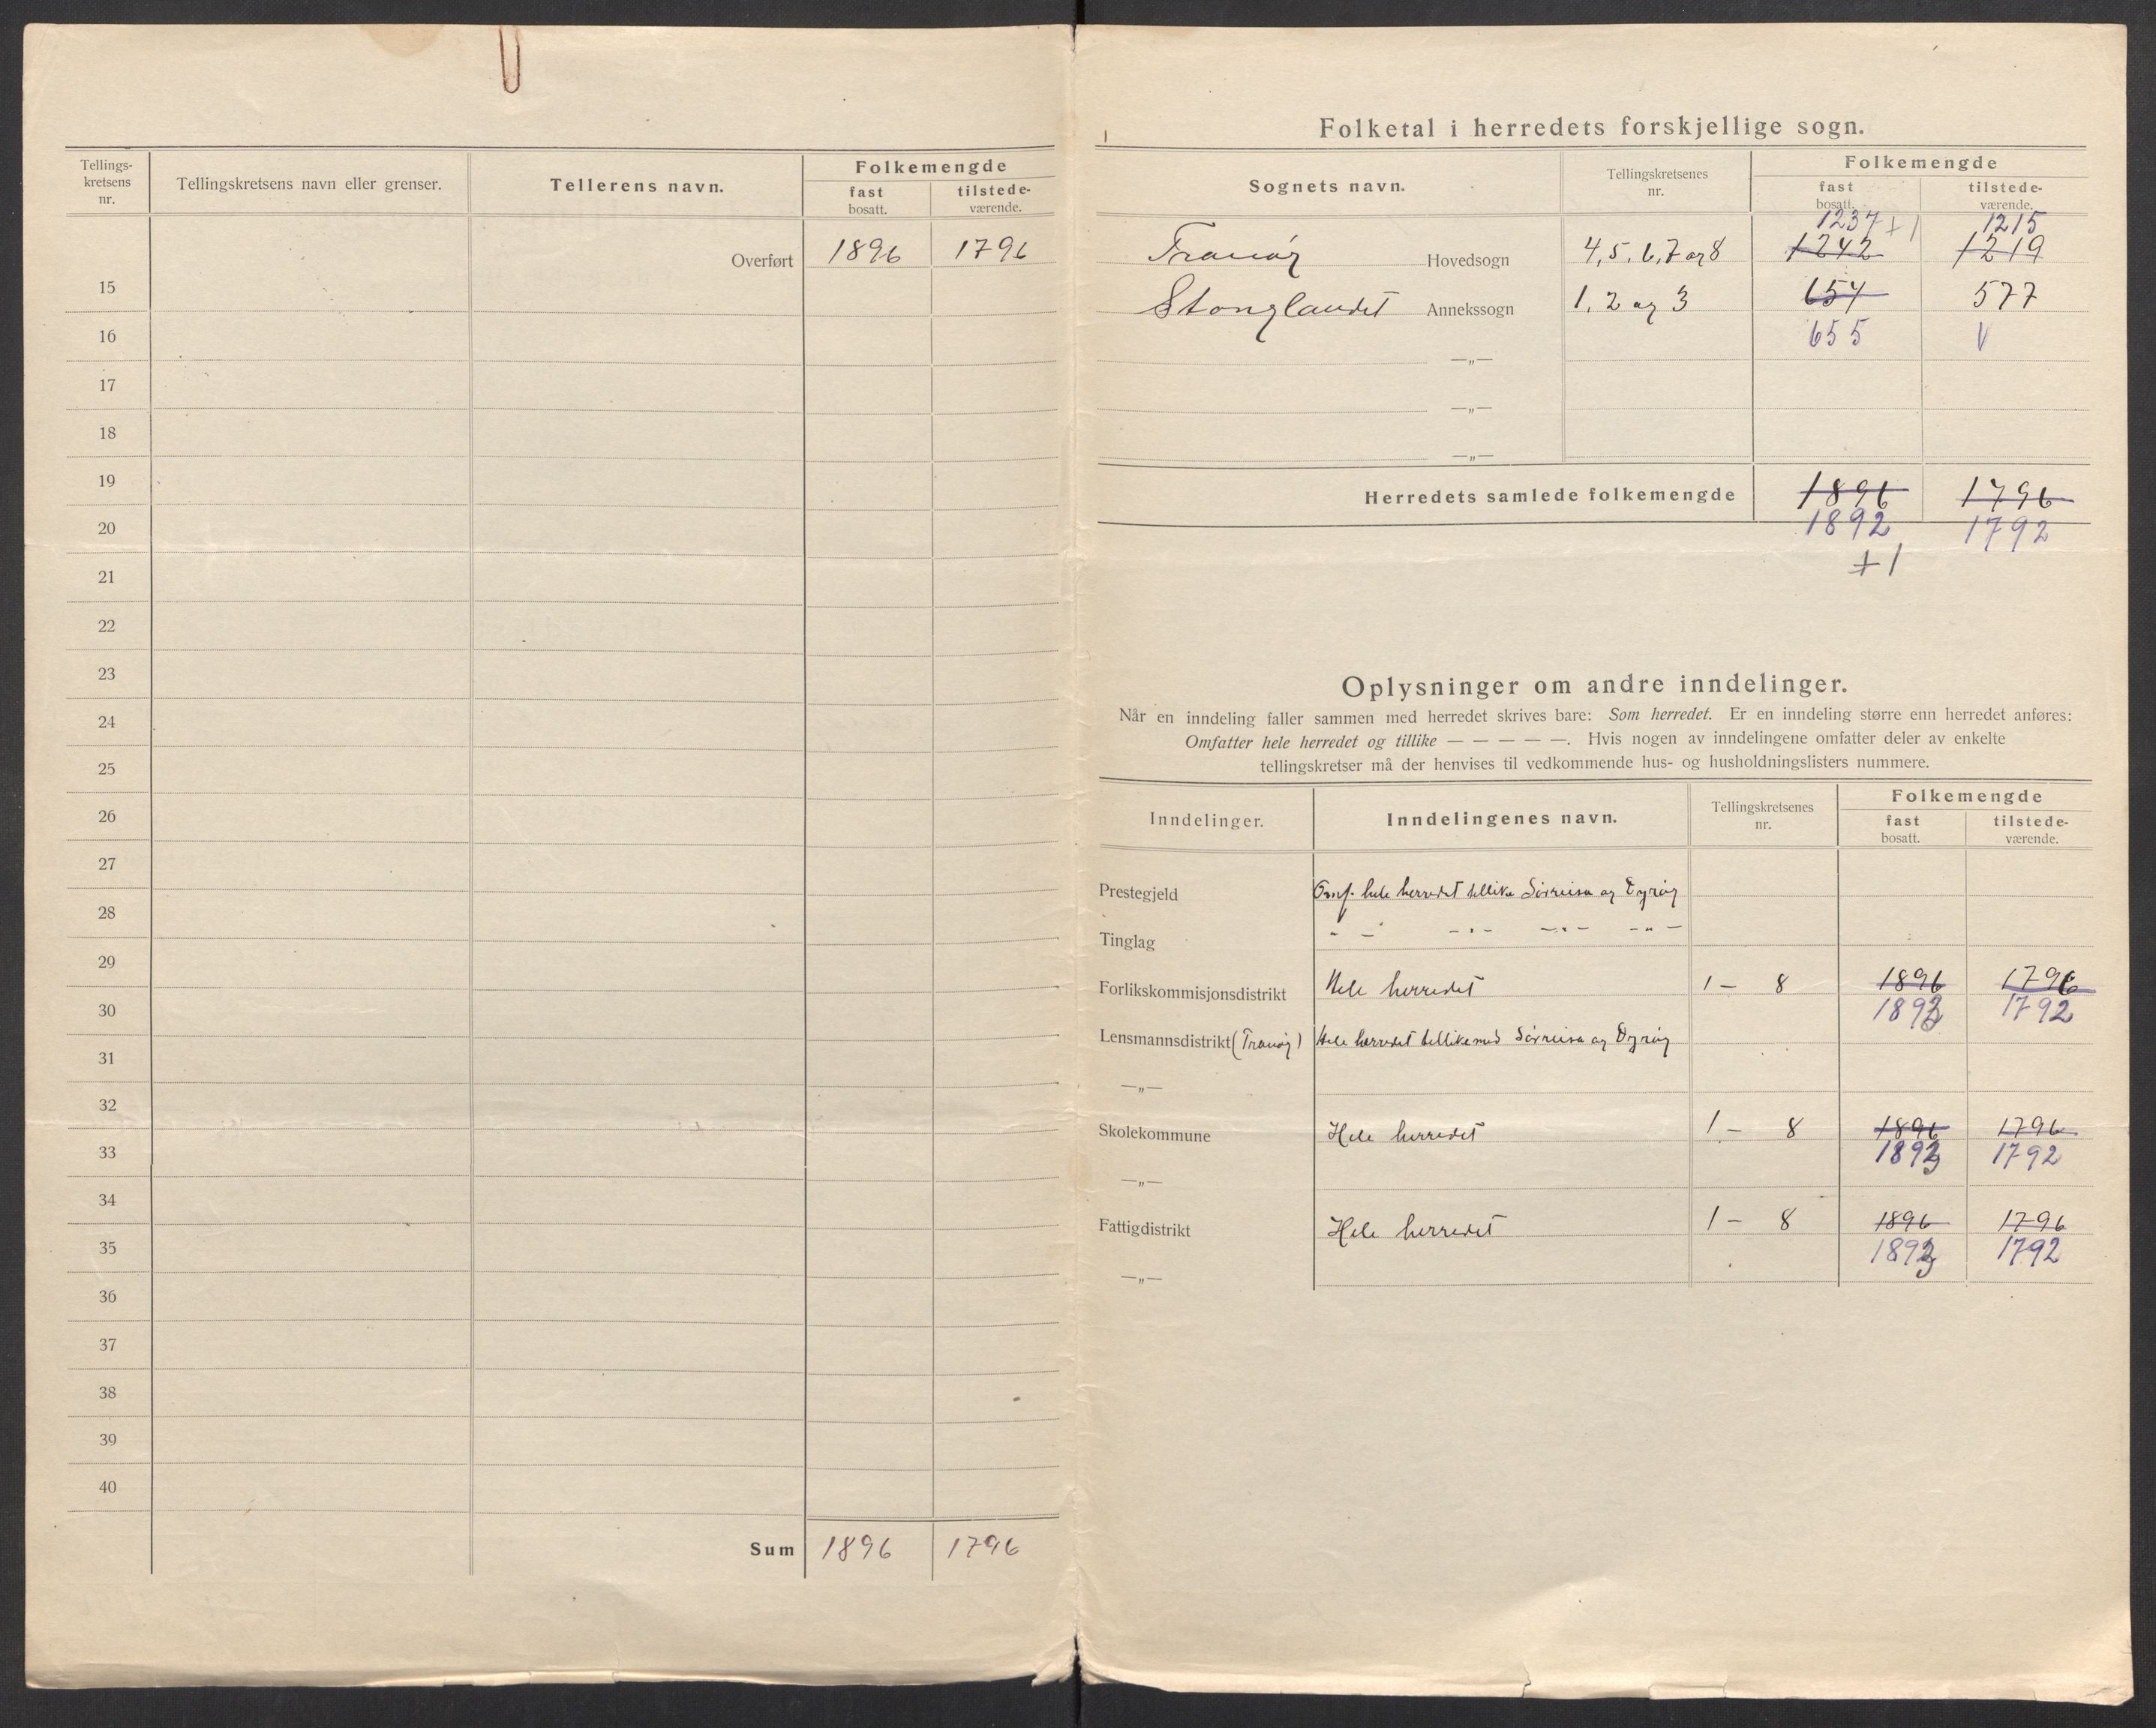 Tellings-
kretsens
nr.
Tellingskretsens navn eller grenser.
Tellerens navn.
Folkemengde
fast
bosatt.
tilstede-
værende.
Overført 1896 1796
15
16
17
18
19
20
21
22
23
24
25
26
27
28
29
30
31
32
33
34
35
36
37
38
39
40
Sum 1896 1796
Folketal i herredets forskjellige sogn.
Sognets navn.
Tellingskretsenes
nr.
Folkemengde
fast
bosatt.
tilstede-
værende.
1237 +1 1215
Tranøy Hovedsogn 4, 5, 6, 7 og 8 1242 1219
Stonglandet Annekssogn 1, 2 og 3 654 577
655 V
—„—
—„—
—„—
Herredets samlede folkemengde 1896 1796
1892 1792
+1
Oplysninger om andre inndelinger.
Når en inndeling faller sammen med herredet skrives bare: Som herredet. Er en inndeling større enn herredet anføres:
Omfatter hele herredet og tillike — — — — —. Hvis nogen av inndelingene omfatter deler av enkelte
tellingskretser må der henvises til vedkommende hus- og husholdningslisters nummere.
Inndelinger.
Inndelingenes navn.
Tellingskretsenes
nr.
Folkemengde
fast
bosatt.
tilstede-
værende.
Prestegjeld Omf. hele herredet tillike Sørreisa og Dyrøy
Tinglag " — — " — — " — — " —
Forlikskommisjonsdistrikt Hele herredet 1 — 8 1896 1796
1893 1792
Lensmannsdistrikt (Tranøy) Hele herredet tillikemed Sørreisa og Dyrøy
—„—
Skolekommune Hele herredet 1 — 8 1896 1796
1893 1792
—„—
Fattigdistrikt Hele herredet 1 — 8 1896 1796
1893 1792
—„—